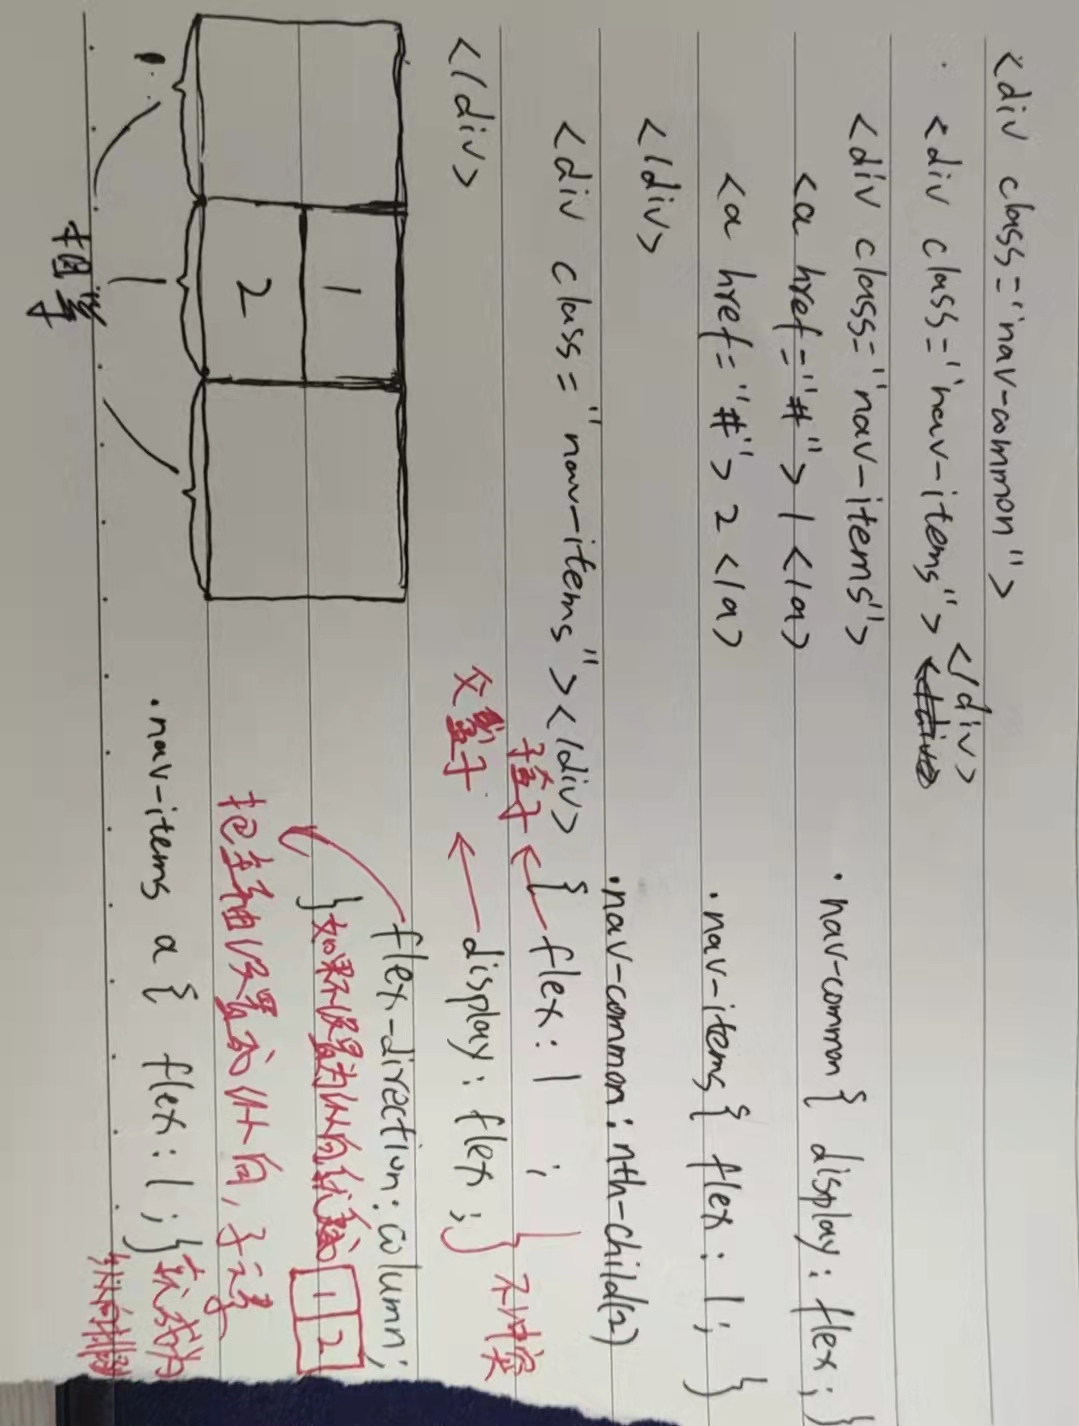 <div class="nav-common">
<div class="nav-items"></div>
<div class="nav-items">
<a href="#">1</a>
<a href="#">2</a>
</div>
<div class="nav-items"></div>
</div>
1
2
相等
.nav-common{ display:flex;}
.nav-items{ flex:1; }
.nav-common:nth-child(2)
子盒子 ← { flex:1; } 不冲突
父盒子 ← display:flex;
flex-direction:column;
}如果不设置为纵向就
1 2
把主轴设置为纵向,子元素
.nav-items a{ flex:1;} 就成为
纵向排列